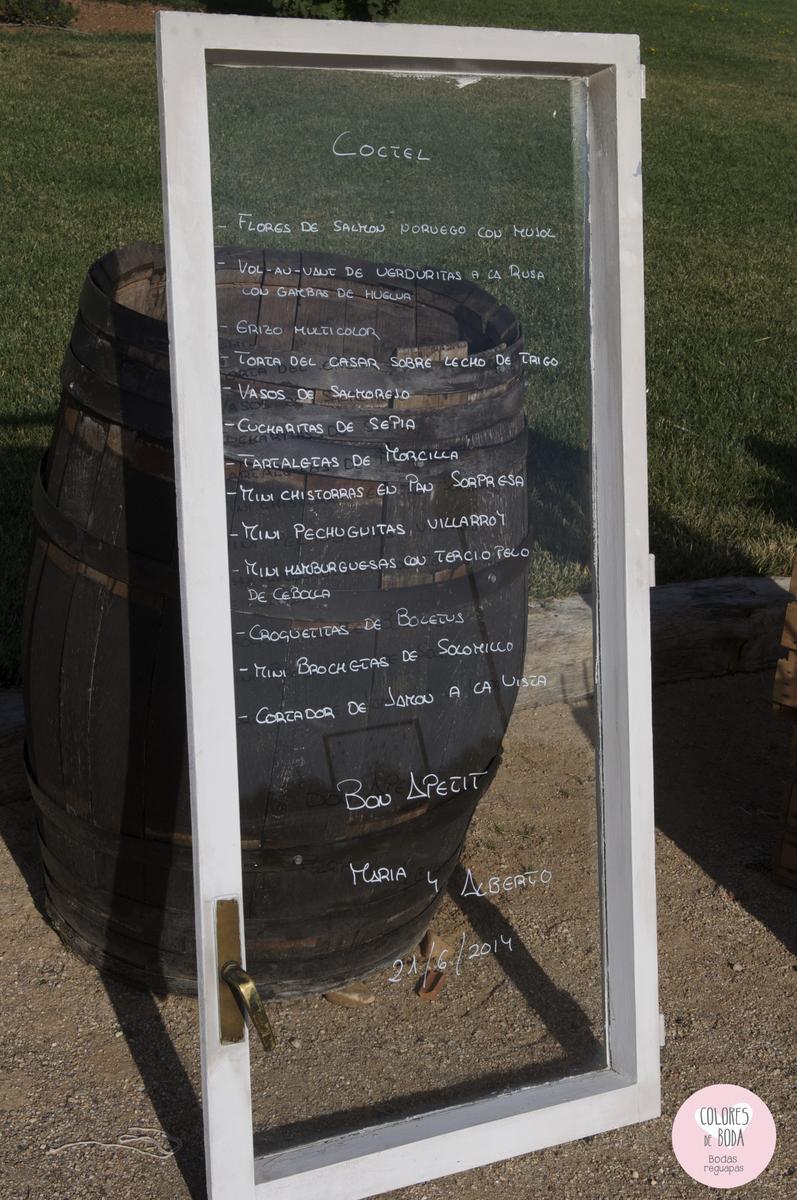 COCTEL
- FLORES DE SALMON NORUEGO CON MUJOL
- VOL-AU-VANT DE VERDURITAS A LA RUSA
CON GAMBAS DE HUELVA
- ERIZO MULTICOLOR
- TORTA DEL CASAR SOBRE LECHO DE TRIGO
- VASOS DE SALMOREJO
- CUCHARITAS DE SEPIA
- TARTALETAS DE MORCILLA
- MINI CHISTORRAS EN PAN SORPRESA
- MINI PECHUGUITAS VILLARROY
- MINI HAMBURGUESAS CON TERCIOPELO
DE CEBOLLA
- CROQUETITAS DE BOLETUS
- MINI BROCHETAS DE SOLOMILLO
- CORTADOR DE JAMON A LA VISTA
BON APETIT
MARIA Y ALBERTO
21/6/2014
COLORES
DE BODA
Bodas
reguapas